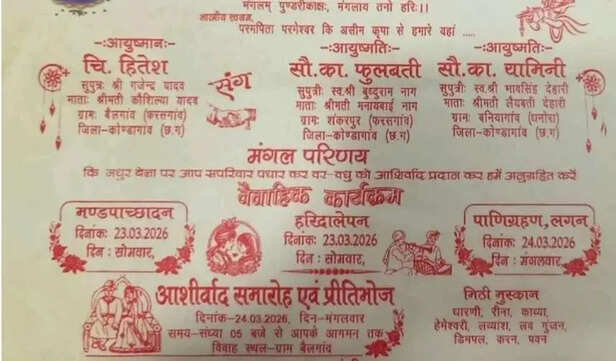 मंगलम् पुण्डरीकाक्षः, मंगलाय तनो हरिः।।
परमपिता परमेश्वर कि असीम कृपा से हमारे यहां .....
-:आयुष्मानः-
चि. हितेश
सुपुत्रः श्री गजेन्द्र यादव
माताः श्रीमती कौशिल्या यादव
ग्रामः बैलगांव (फरसगांव)
जिला-कोण्डागांव (छ.ग)
संग
-:आयुष्मतिः-
सौ.का. फुलबती
सुपुत्रीः स्व.श्री बुधुराम नाग
माताः श्रीमती मनायबाई नाग
ग्रामः शंकरपुर (फरसगांव)
जिला-कोण्डागांव (छ.ग)
-:आयुष्मतिः-
सौ.का. यामिनी
सुपुत्रीः स्व.श्री भावसिंह देहारी
माताः श्रीमती लैयबती देहारी
ग्रामः बनियागांव (धनोरा)
जिला-कोण्डागांव (छ.ग)
मंगल परिणय
कि मधुर बेला पर आप सपरिवार पधार कर वर-वधु को आशिर्वाद प्रदान कर हमें अनुग्रहित करें
वैवाहिक कार्यक्रम
मण्डपाच्छादन
दिनांकः 23.03.2026
दिन : सोमवार,
हरिद्रालेपन
दिनांकः 23.03.2026
दिन : सोमवार,
पाणिग्रहण, लगन
दिनांकः 24.03.2026
दिन : मंगलवार
आशीर्वाद समारोह एवं प्रीतिभोज
दिनांक-24.03.2026, दिन-मंगलवार
समय-संध्या 05 बजे से आपके आगमन तक
विवाह स्थल-ग्राम बैलगांव
मिठी मुस्कान
धारणी, रीना, काव्या,
हेमेश्वरी, लव्यांश, लव गुंजन,
डिमपल, करन, पवन